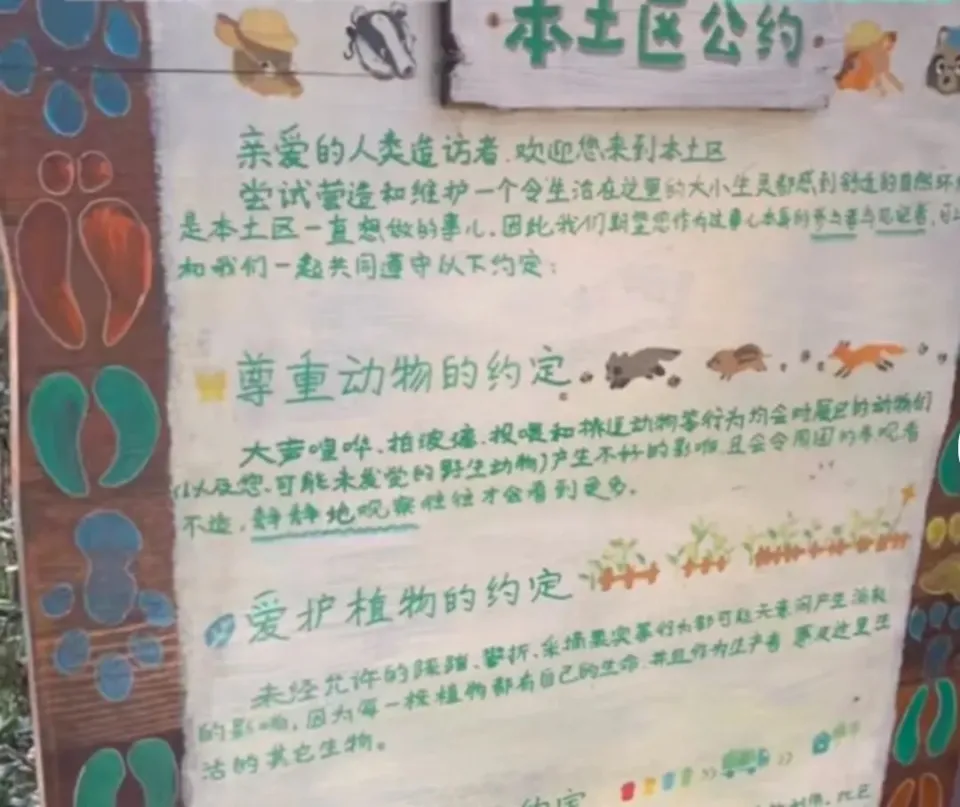 本土区公约
亲爱的人类造访者,欢迎您来到本土区
尝试营造和维护一个令生活在这里的大小生灵都感到舒适的自然环
是本土区一直想做的事儿。因此我们期望您作为这事儿本身的参与者与见证者,可以
和我们一起共同遵守以下约定:
尊重动物的约定
大声喧哗、拍玻璃、投喂和挑逗动物等行为均会对展区的动物们
(以及您可能未发觉的野生动物)产生不好的影响,且会令周围的参观者
不适,静静地观察往往才会看到更多。
爱护植物的约定
未经允许的踩踏、攀折、采摘果实等行为都可能无意间产生消极
的影响,因为每一棵植物都有自己的生命,并且作为生产者 惠及这里生
活的其它生物。
约定